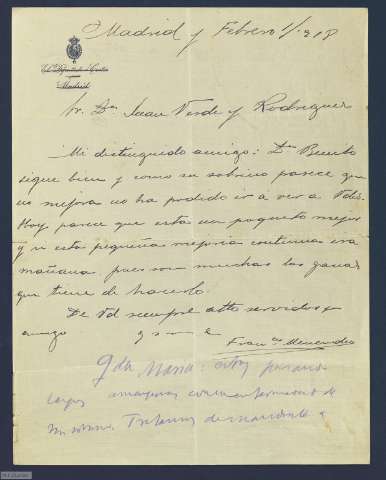 Madrid y Febrero 1/918
Madrid
Sr. Dn Juan Verde y Rodriguez
Mi distinguido amigo: Dn Benito
sigue bien y como su sobrino parece que
no mejora no ha podido ir a ver a Vdes.
Hoy parece que esta un poquito mejor
y si esta pequeña mejoria continua ira
mañana, pues son muchas las ganas
que tiene de hacerlo.
De Vd siempre atto servidor y
amigo q s m e
Franco Menendez
Qda Maria: estoy pasando
amarguras con